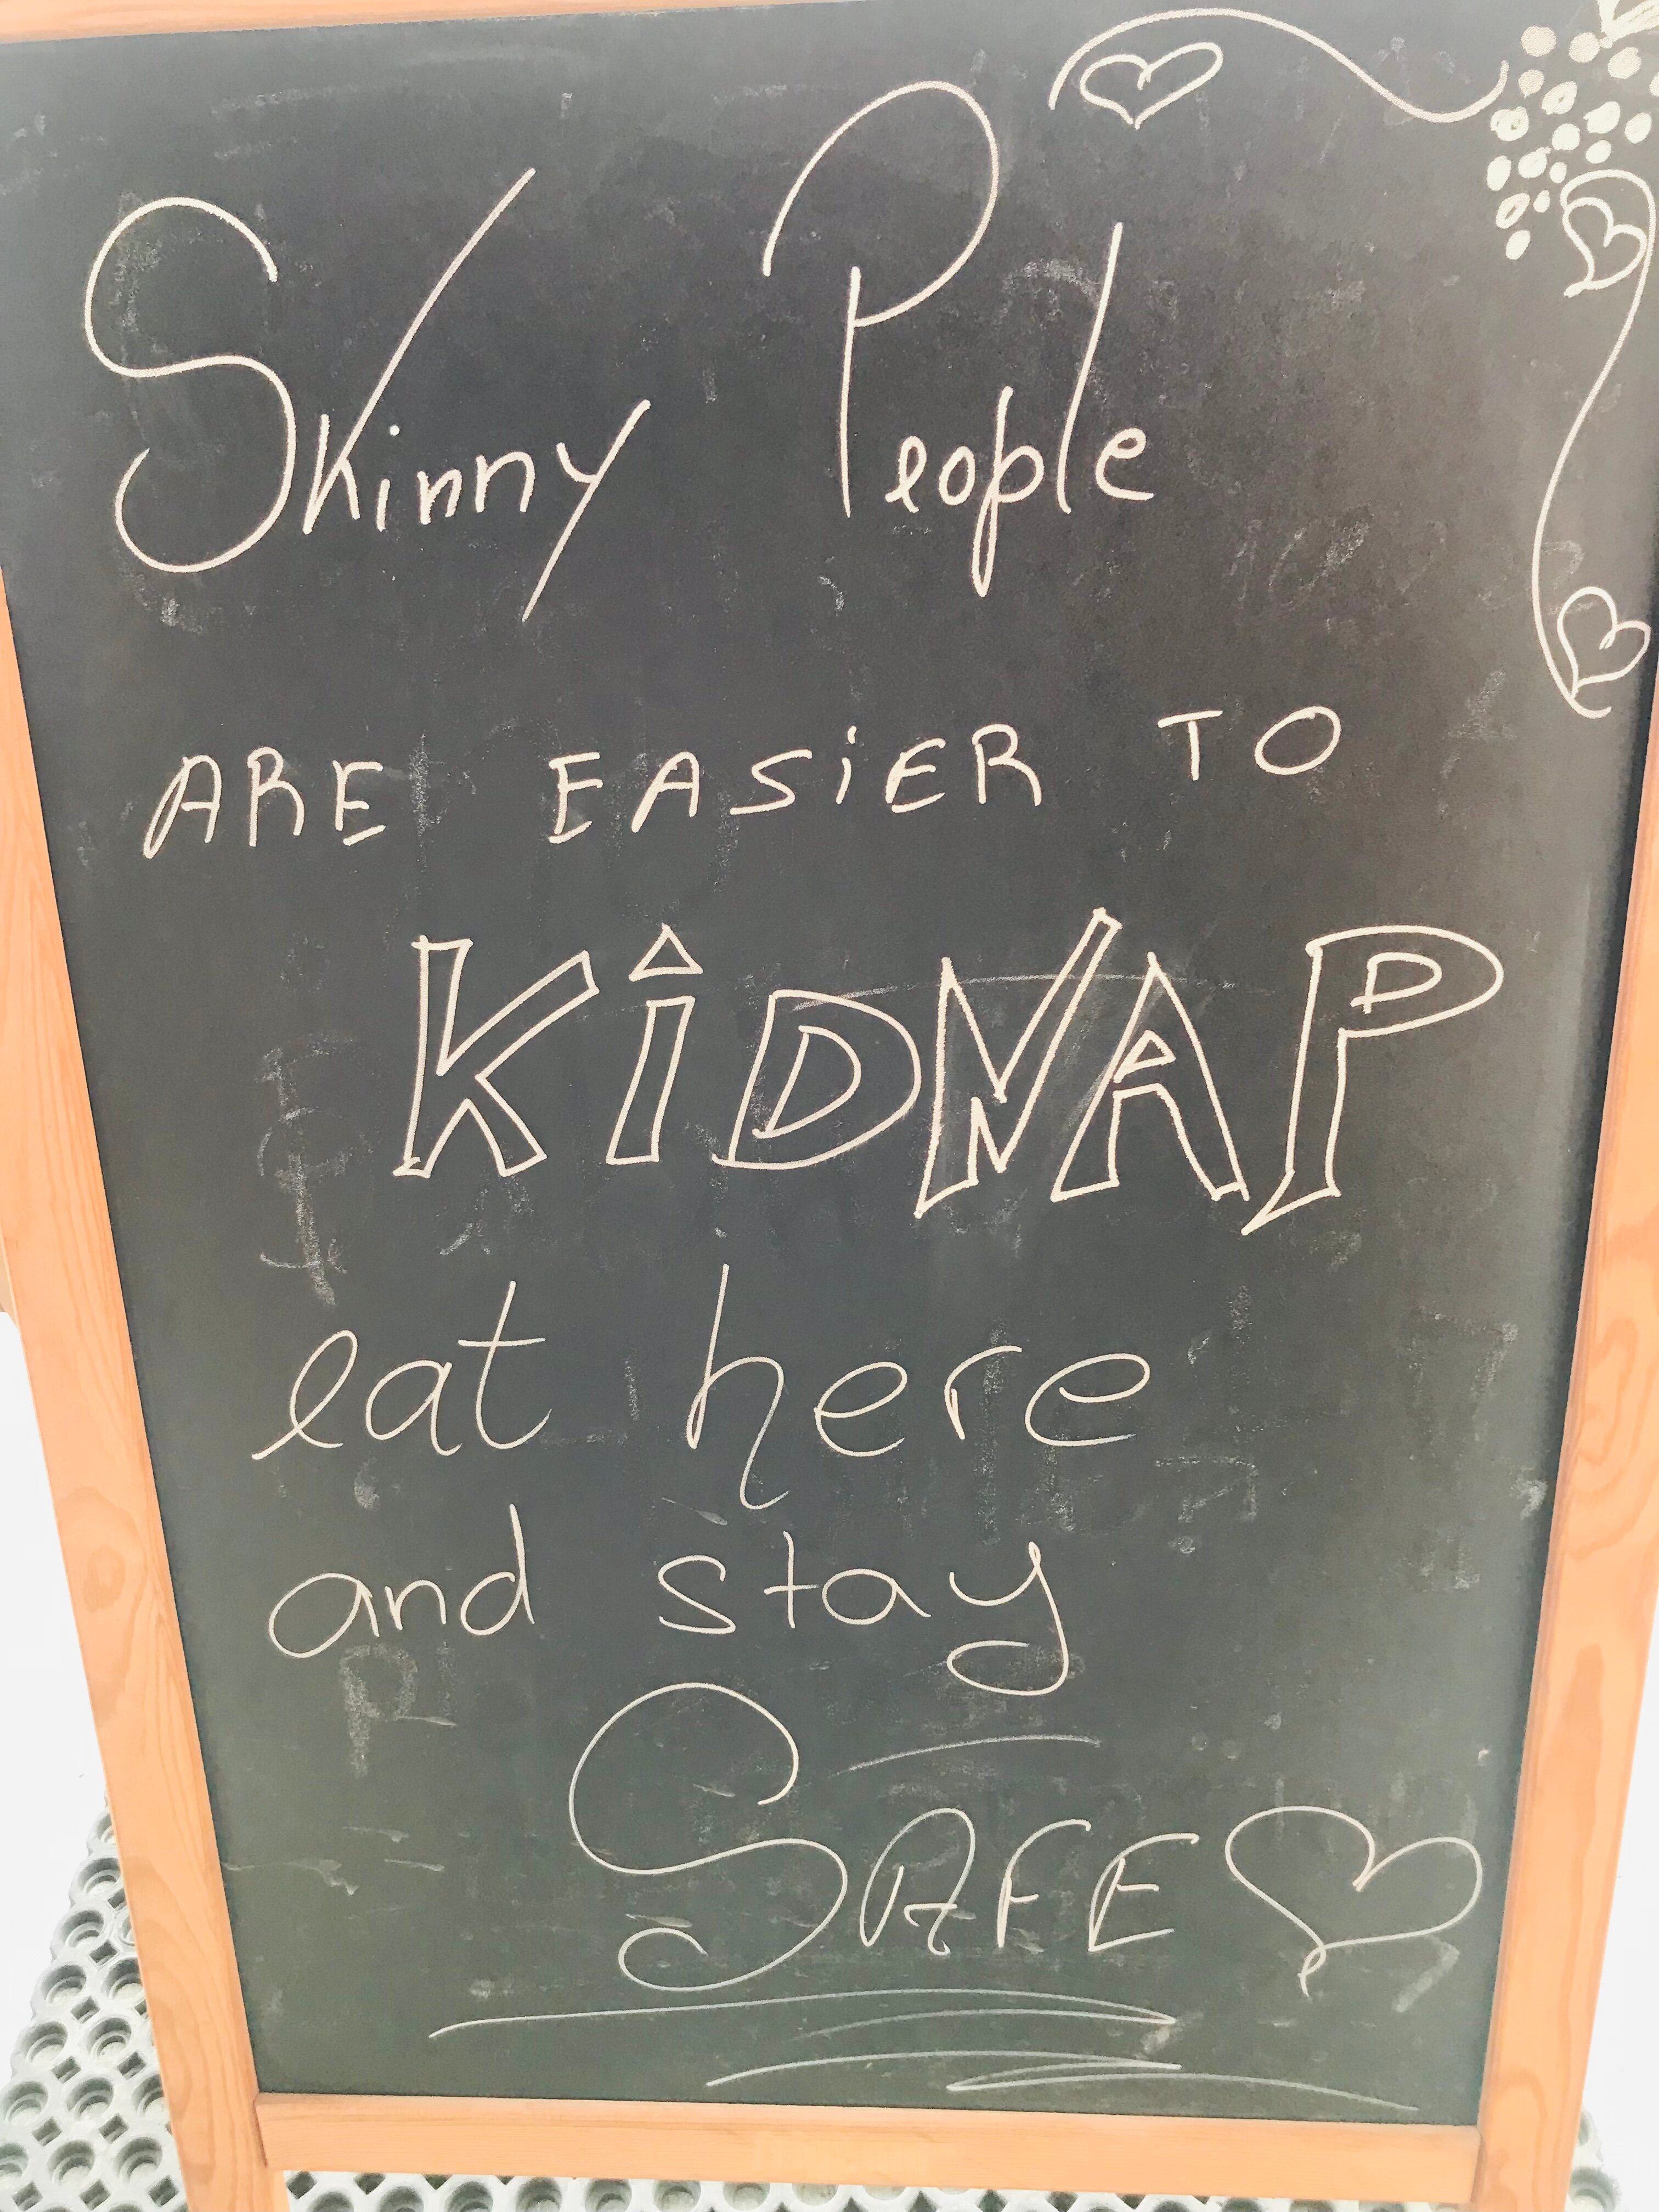 Skinny People
ARE EASiER TO
KiDNAP
eat here
and stay
SAFE